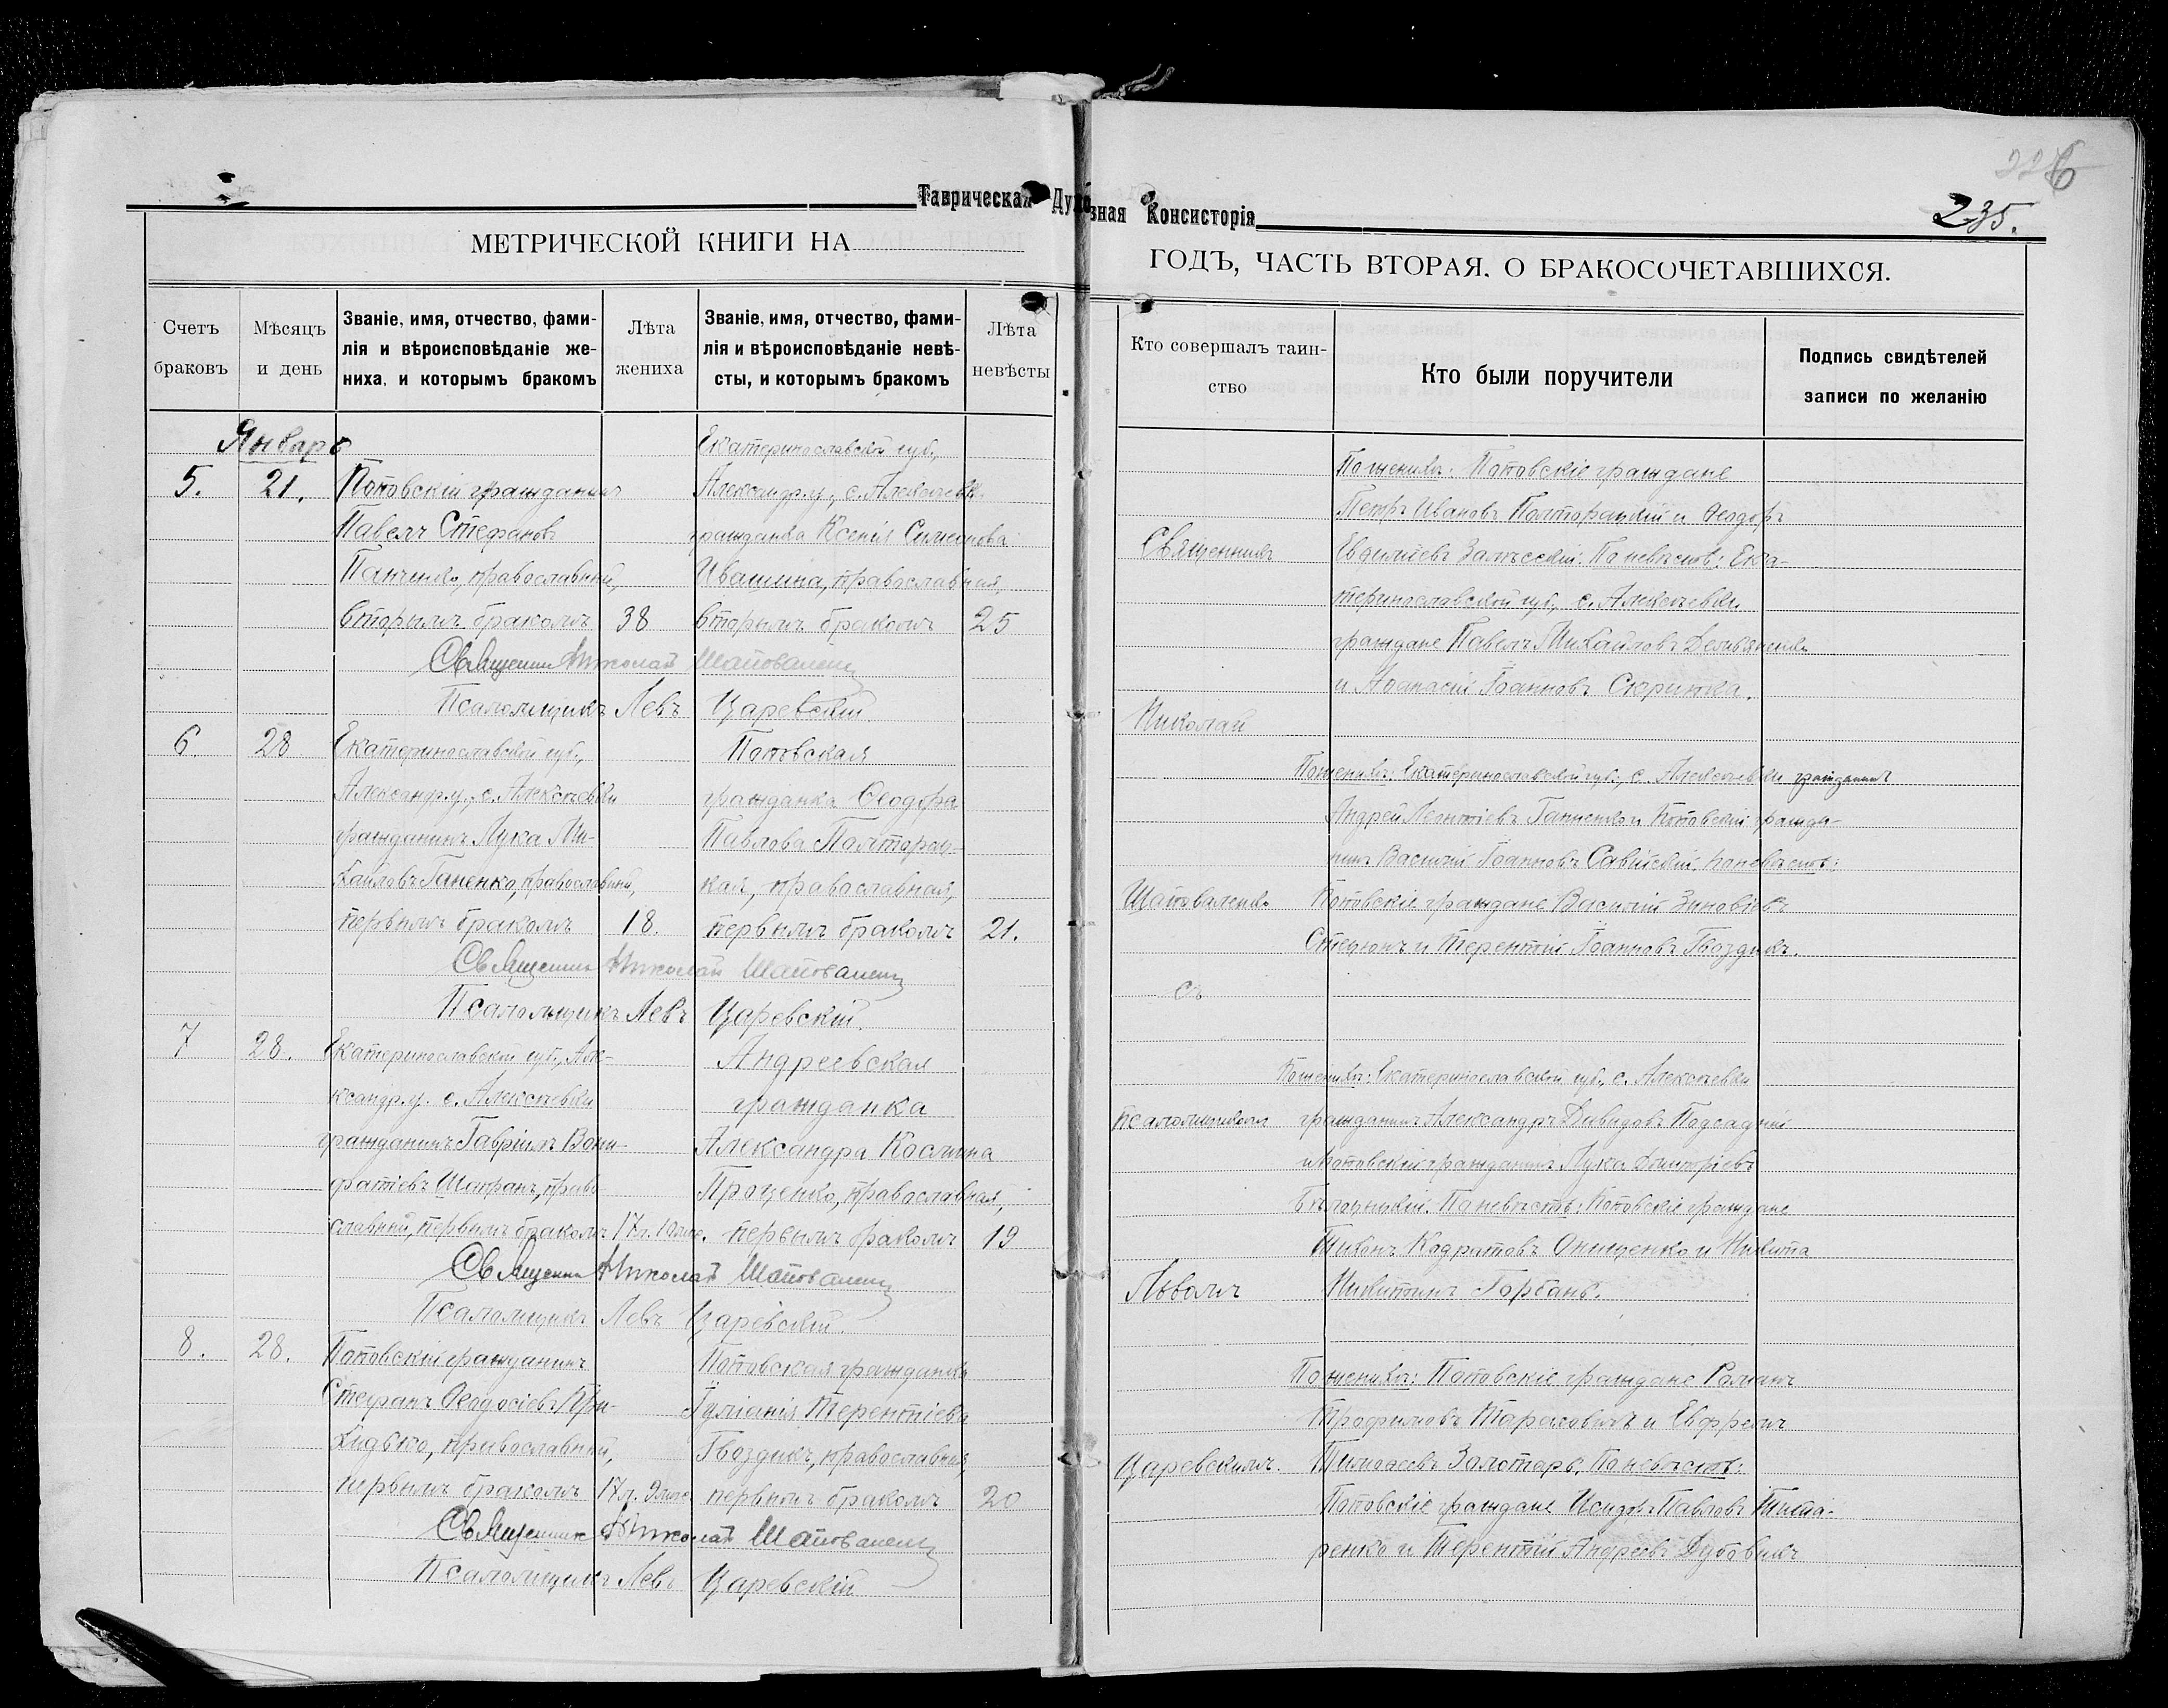 226
235.
Таврическая Духовная Консисторія
МЕТРИЧЕСКОЙ КНИГИ НА
ГОДЪ, ЧАСТЬ ВТОРАЯ, О БРАКОСОЧЕТАВШИХСЯ.
Счетъ браковъ
Мѣсяцъ и день
Званіе, имя, отчество, фами-
лія и вѣроисповѣданіе же-
ниха, и которымъ бракомъ
Лѣта жениха
Званіе, имя, отчество, фами-
лія и вѣроисповѣданіе невѣ-
сты, и которымъ бракомъ
Лѣта невѣсты
Кто совершалъ таин-
ство
Кто были поручители
Подпись свидѣтелей
записи по желанію
Январь
5.
21.
Поповскій гражданинъ
Павелъ Стефановъ
Панченко, православный,
вторымъ бракомъ
38
Екатеринославской губ.,
Александр. у., с. Алексѣевки
гражданка Ксенія Симеонова
Ивашина, православная,
вторымъ бракомъ
25
Священникъ Николай Шаповаленко
Псаломщикъ Левъ Царевскій.
6.
28
Екатеринославской губ.,
Александр. у., с. Алексѣевки
гражданинъ Лука Ми-
хайловъ Ганенко, православный,
первымъ бракомъ
18.
Поповская
гражданка Ѳеодора
Павлова Полторац-
кая, православная,
первымъ бракомъ
21.
Священникъ Николай Шаповаленко
Псаломщикъ Левъ Царевскій.
7
28.
Екатеринославской губ., Але-
ксандр. у. с. Алексѣевки
гражданинъ Гавріилъ Вони-
фатіевъ Шапранъ, право-
славный, первымъ бракомъ
17 л. 10 мѣс.
Андреевская
гражданка
Александра Космина
Проценко, православная,
первымъ бракомъ
19
Священникъ Николай Шаповаленко
Псаломщикъ Левъ Царевскій.
8.
28.
Поповскій гражданинъ
Стефанъ Ѳеодосіевъ При-
ходько, православный,
первымъ бракомъ
17 л. 9 мѣс.
Поповская гражданка
Іуліанія Терентіева
Гвоздикъ, православная,
первымъ бракомъ
20
Священникъ Николай Шаповаленко
Псаломщикъ Левъ Царевскій
Священникъ
Николай
Шаповаленко
съ
псаломщикомъ
Львомъ
Царевскимъ.
По женихѣ: Поповскіе граждане
Петръ Ивановъ Полторацкій и Ѳеодоръ
Евѳиміевъ Залѣсскій. По невѣстѣ: Ека-
теринославской губ., с. Алексѣевки
граждане Павелъ Михайловъ
и Аѳанасій Іоанновъ Скрипка.
По женихѣ: Екатеринославской губ., с. Алексѣевки гражданинъ
Андрей Леонтіевъ Ганненко и Поповскій гражда-
нинъ Василій Іоанновъ Савійскій. По невѣстѣ:
Поповскіе граждане Василій Зиновіевъ
Стецюнъ и Терентій Іоанновъ Гвоздикъ.
По женихѣ: Екатеринославской губ., с. Алексѣевки
гражданинъ Александръ Давидовъ Подсадній
и Поповскій гражданинъ Лука Димитріевъ
По невѣстѣ: Поповскіе граждане
Тихонъ Кодратовъ Онищенко и Никита
Никитинъ Горбань.
По женихѣ: Поповскіе граждане Романъ
Трофимовъ и Евфремъ
Тимоѳеевъ Золотарь. По невѣстѣ:
Поповскіе граждане Исидоръ Павловъ Тита-
ренко и Терентій Андреевъ Дубовикъ